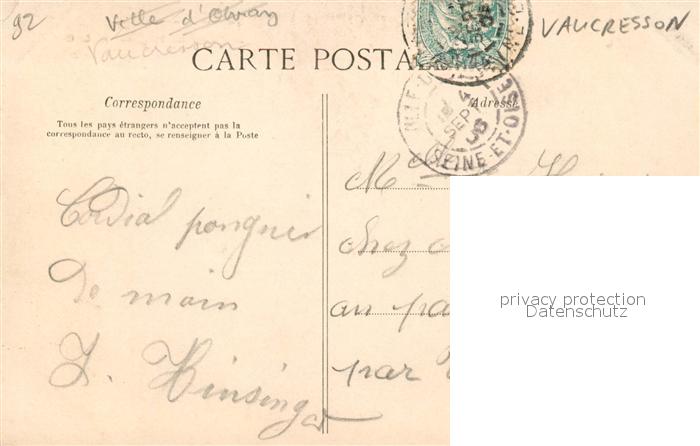 92
Ville d'Avray
VAUCRESSON
Vaucresson
CARTE POSTALE
Correspondance
Adresse
Tous les pays étrangers n'acceptent pas la
correspondance au recto, se renseigner à la Poste
SEINE-ET-OISE
SEPT
Cordial poignée
de main
chez
au pa
par
Hinsinger
privacy protection
Datenschutz